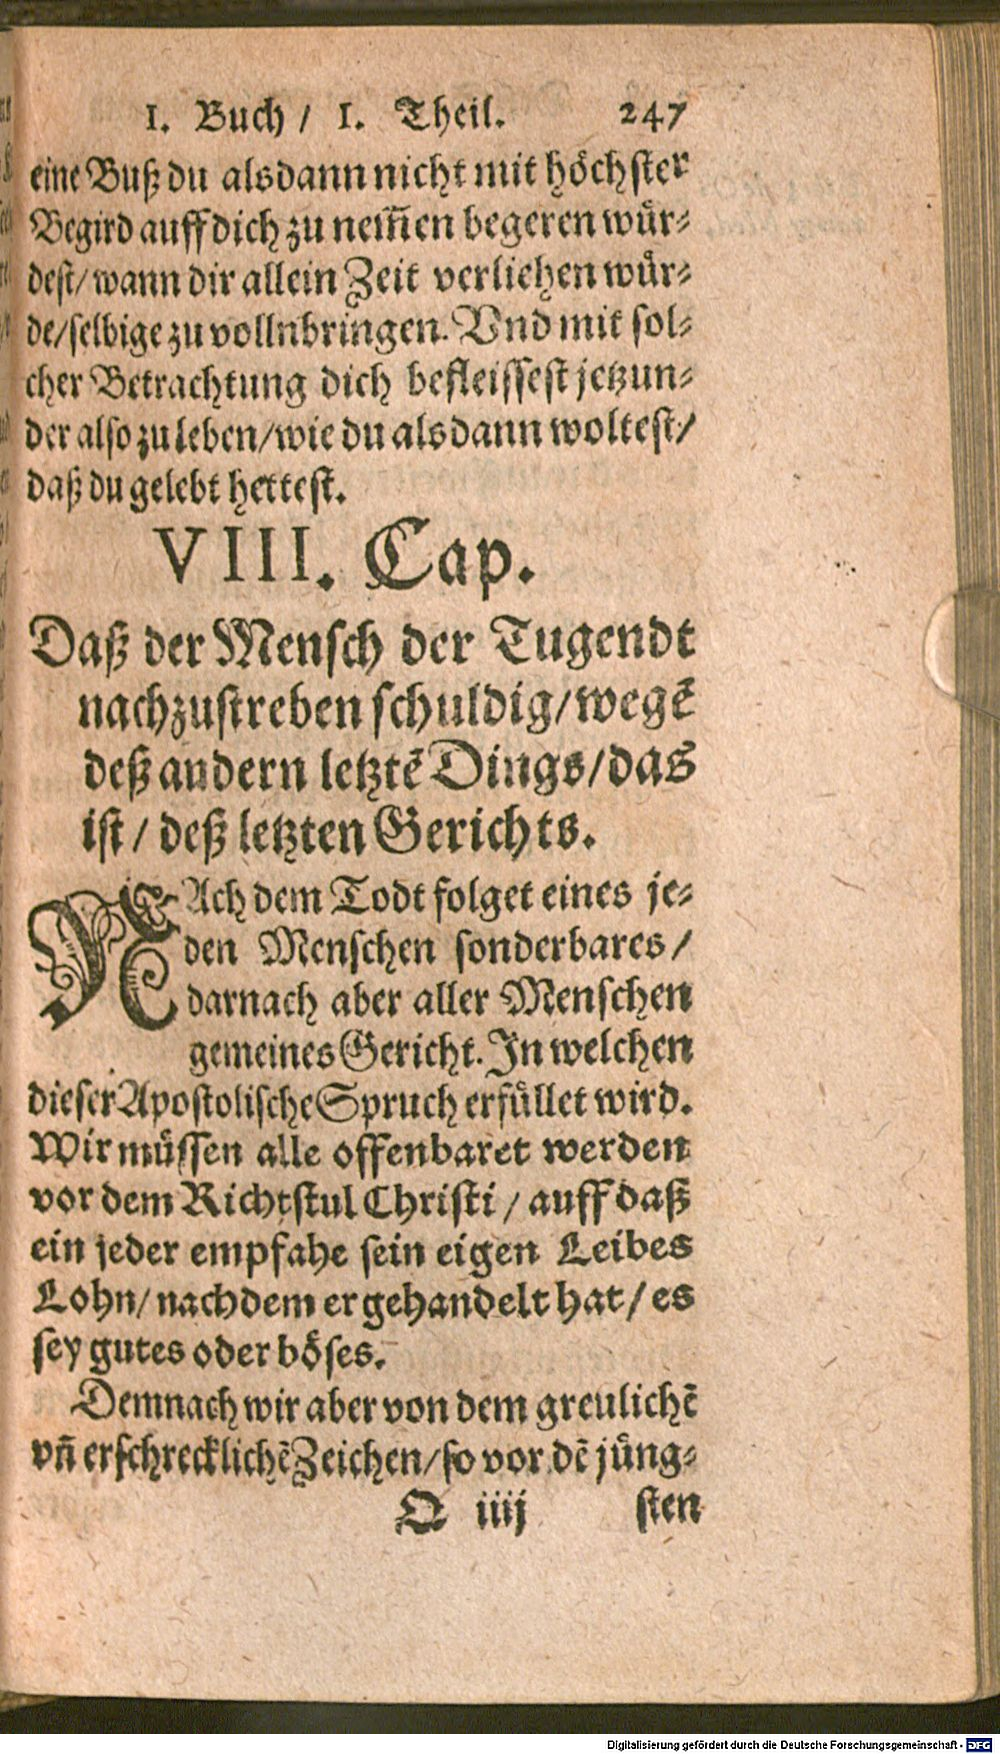 1. Buch / 1. Theil. 247
eine Buß du alsdann nicht mit höchster
Begird auff dich zu nem̃en begeren wür-
dest / wann dir allein Zeit verliehen wür-
de / selbige zu vollnbringen. Vnd mit sol-
cher Betrachtung dich befleissest jetzun-
der also zu leben / wie du alsdann woltest /
daß du gelebt hettest.
VIII. Cap.
Daß der Mensch der Tugendt
nachzustreben schuldig / wegẽ
deß andern letztẽ Dings / das
ist / deß letzten Gerichts.
NAch dem Todt folget eines je-
den Menschen sonderbares /
darnach aber aller Menschen
gemeines Gericht. In welchen
dieser Apostolische Spruch erfüllet wird.
Wir müssen alle offenbaret werden
vor dem Richtstul Christi / auff daß
ein jeder empfahe sein eigen Leibes
Lohn / nachdem er gehandelt hat / es
sey gutes oder böses.
Demnach wir aber von dem greulichẽ
vñ erschrecklichẽ Zeichen / so vor dẽ jüng-
Q iiij sten
Digitalisierung gefördert durch die Deutsche Forschungsgemeinschaft - DFG